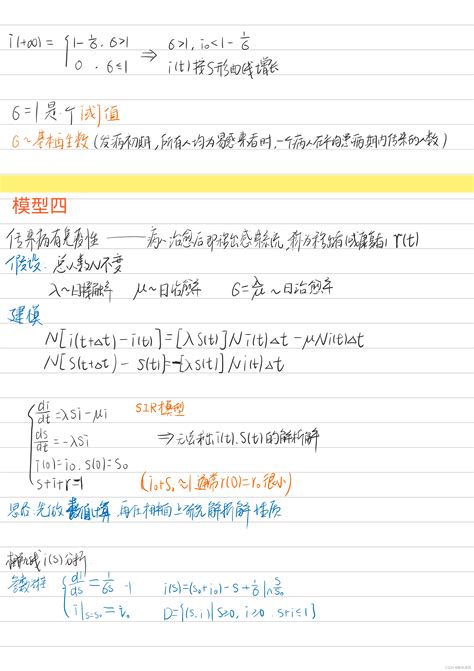 i(+∞) = { 1-1/6, 6>1
0, 6≤1 ⇒ 6>1, i₀<1-1/6
i(t)按S形曲线增长
6=1是个阈值
6~基本再生数(发病初期,所有人均为易感染者时,一个病人在平均患病期内传染的人数)
模型四
传染病有免疫性——病人治愈后即移出感染系统,称为移出者 r(t)
假设 总人数N不变
λ~日接触率 μ~日治愈率 6=λ/μ~
建模
N[i(t+Δt)-i(t)]=[λS(t)]Ni(t)Δt-μNi(t)Δt
N[S(t+Δt)-S(t)]=-[λS(t)]Ni(t)Δt
di/dt=λsi-μi SIR模型
ds/dt=-λsi ⇒无法求出i(t).S(t)的解析解
i(0)=i₀.s(0)=s₀
s+i+r=1 (i₀+s₀≈1 通常r(0)=r₀很小)
思路:先做数值计算,再在相平面上研究解析解性质
相轨线i(s)分析
消去dt { di/ds=1/6s-1 i(s)=(s₀+i₀)-s+1/6 ln s/s₀
i|s=s₀=i₀ D={(s,i)|s≥0,i≥0,s+i≤1}